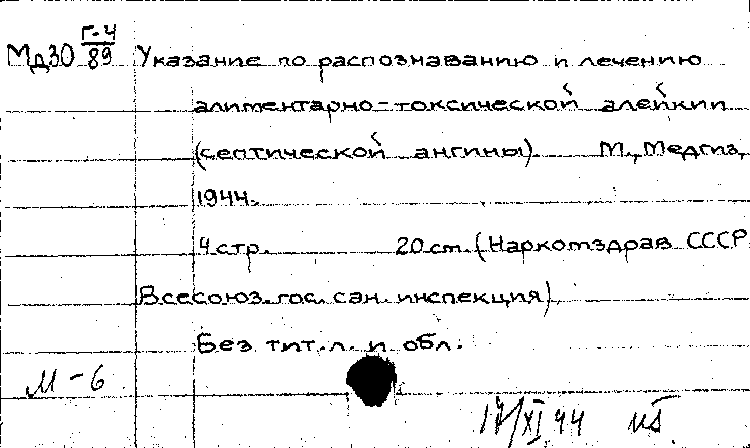 Г-4
Мд30 89 Указание по распознаванию и лечению
алиментарно-токсической алейкии
(септической ангины). М., Медгиз,
1944.
4 стр. 20 см. (Наркомздрав СССР
Всесоюз. гос. сан. инспекция)
Без тит. л. и обл.
М-6
17/XI 44